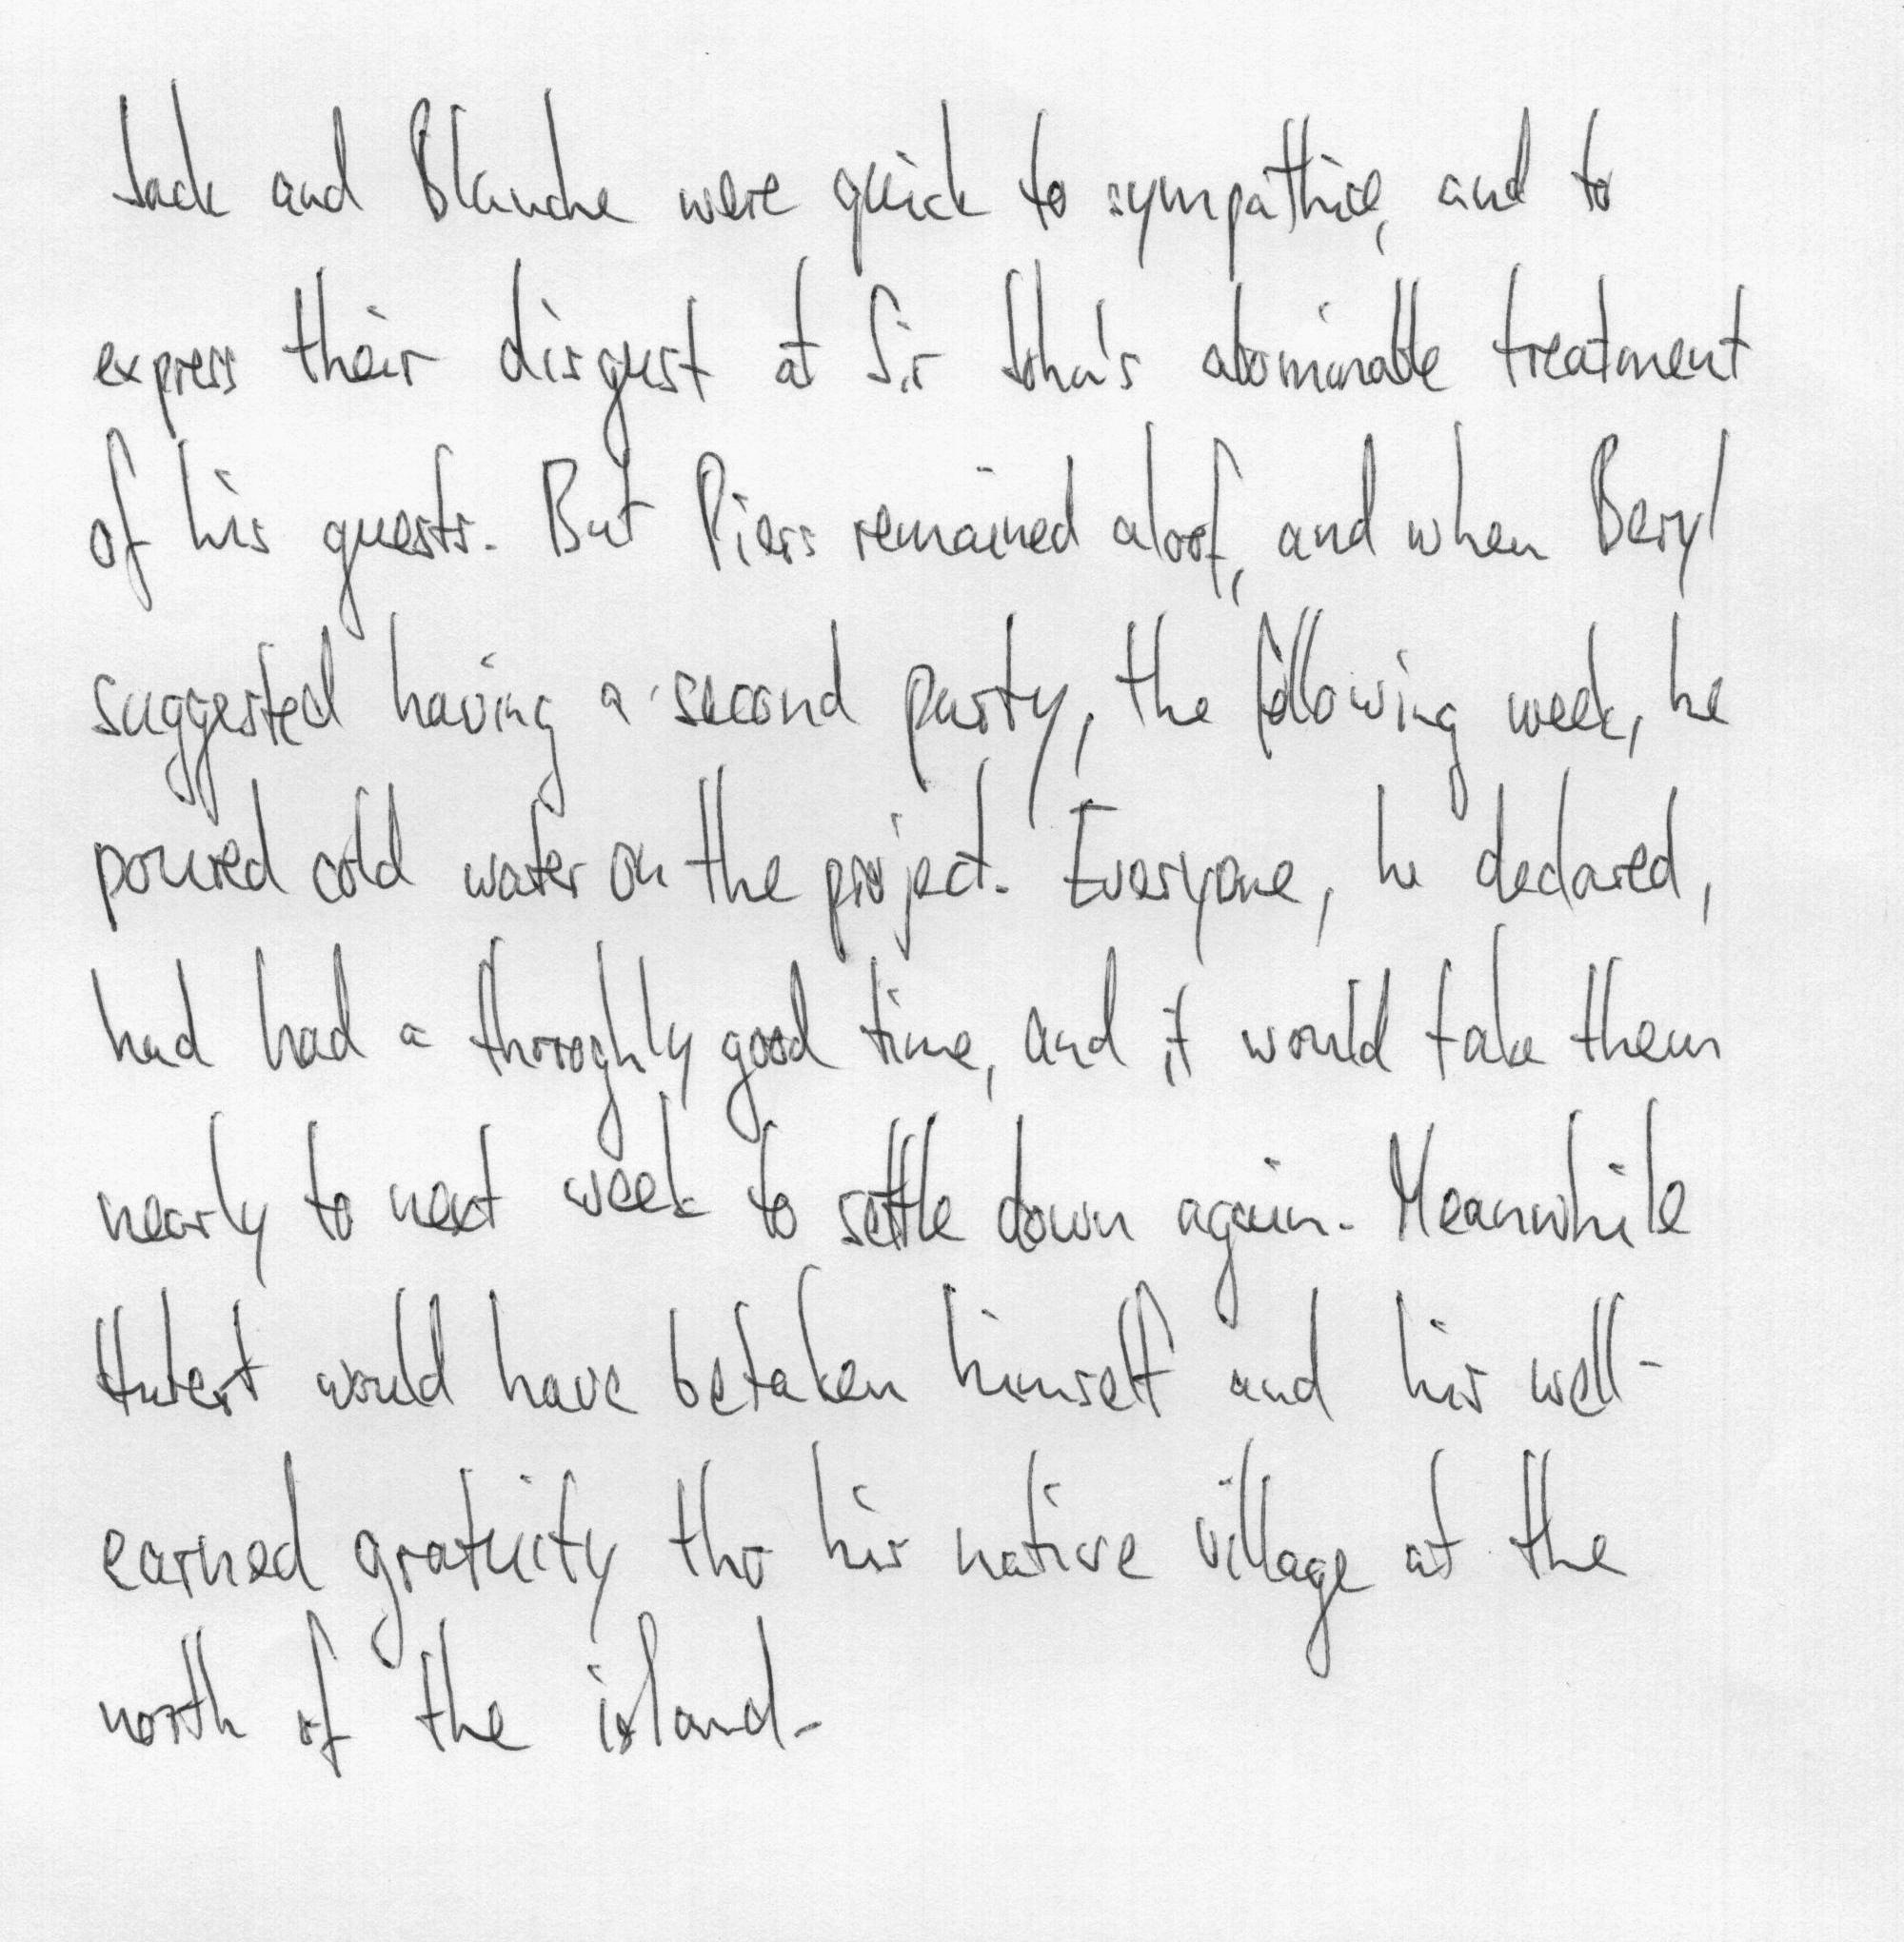 Jack and Blanche were quick to sympathice, and to
express their disgust at Sir John's abominable treatment
of his guests. But Piers remained aloof, and when Beryl
suggested having a second party, the following week, he
poured cold water on the project. Everyone, he declared,
had had a throroghly good time, and it would take them
nearly to next week to settle down again. Meanwhile
Hubert would have betaken himself and his well-
earned gratuity tho his native village at the
north of the island.